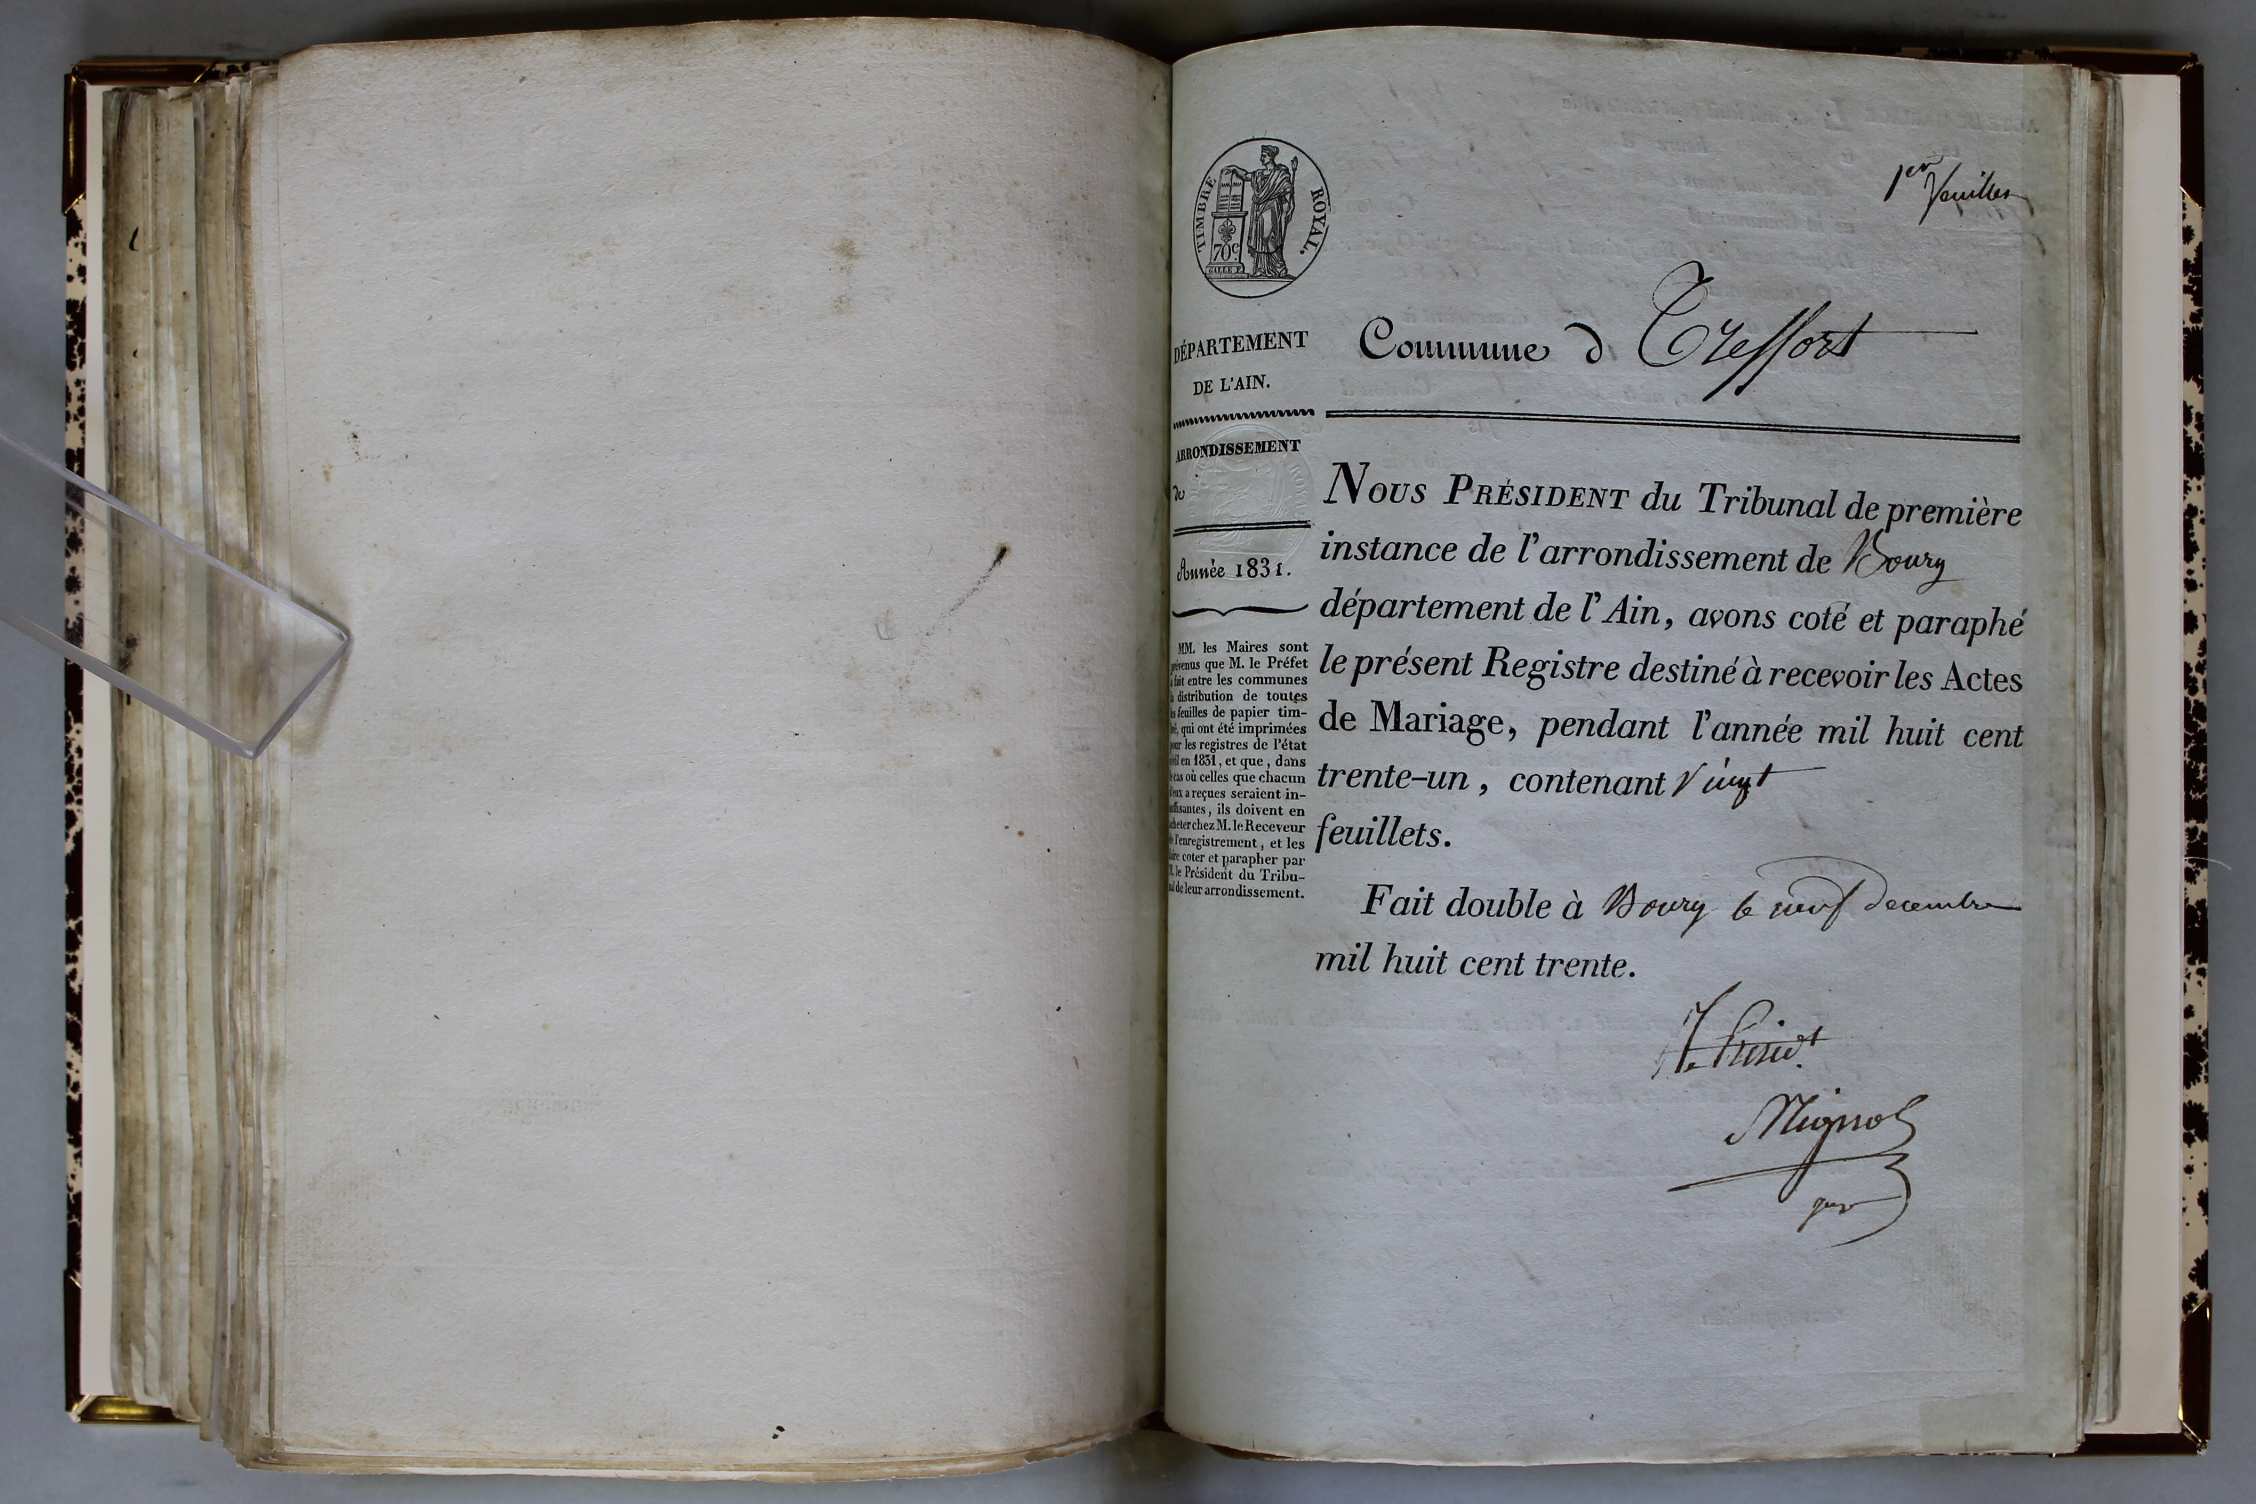 1er
feuillet
TIMBRE ROYAL.
70c.
DÉPARTEMENT
DE L'AIN.
Commune d Treffort
ARRONDISSEMENT
de
Année 1831.
MM. les Maires sont
prévenus que M. le Préfet
a fait entre les communes
la distribution de toutes
les feuilles de papier tim-
bré, qui ont été imprimées
pour les registres de l'état
civil en 1831, et que, dans
le cas où celles que chacun
d'eux a reçues seraient in-
suffisantes, ils doivent en
acheter chez M. le Receveur
de l'enregistrement, et les
faire coter et parapher par
M. le Président du Tribu-
nal de leur arrondissement.
NOUS PRÉSIDENT du Tribunal de première
instance de l'arrondissement de Bourg
département de l'Ain, avons coté et paraphé
le présent Registre destiné à recevoir les Actes
de Mariage, pendant l'année mil huit cent
trente-un, contenant vingt
feuillets.
Fait double à Bourg le neuf decembre
mil huit cent trente.